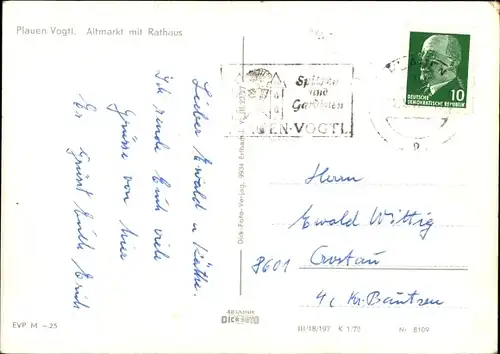 Plauen Vogtl. Altmarkt mit Rathaus
Lieber Ewald u. Käthe.
Ich sende Euch viele
Grüsse von hier
Es grüsst Euch Erich
EVP M –.25
Dick-Foto-Verlag, 9934 Erlbach i. V.
48 JAHRE
DICK FOTO
Spitzen
und
Gardinen
EN-VOGTL
DEUTSCHE
DEMOKRATISCHE REPUBLIK
10
Herrn
Ewald Wittig
8601 Crostau
Kr. Bautzen
III/18/197 K 1/70 Nr 8109